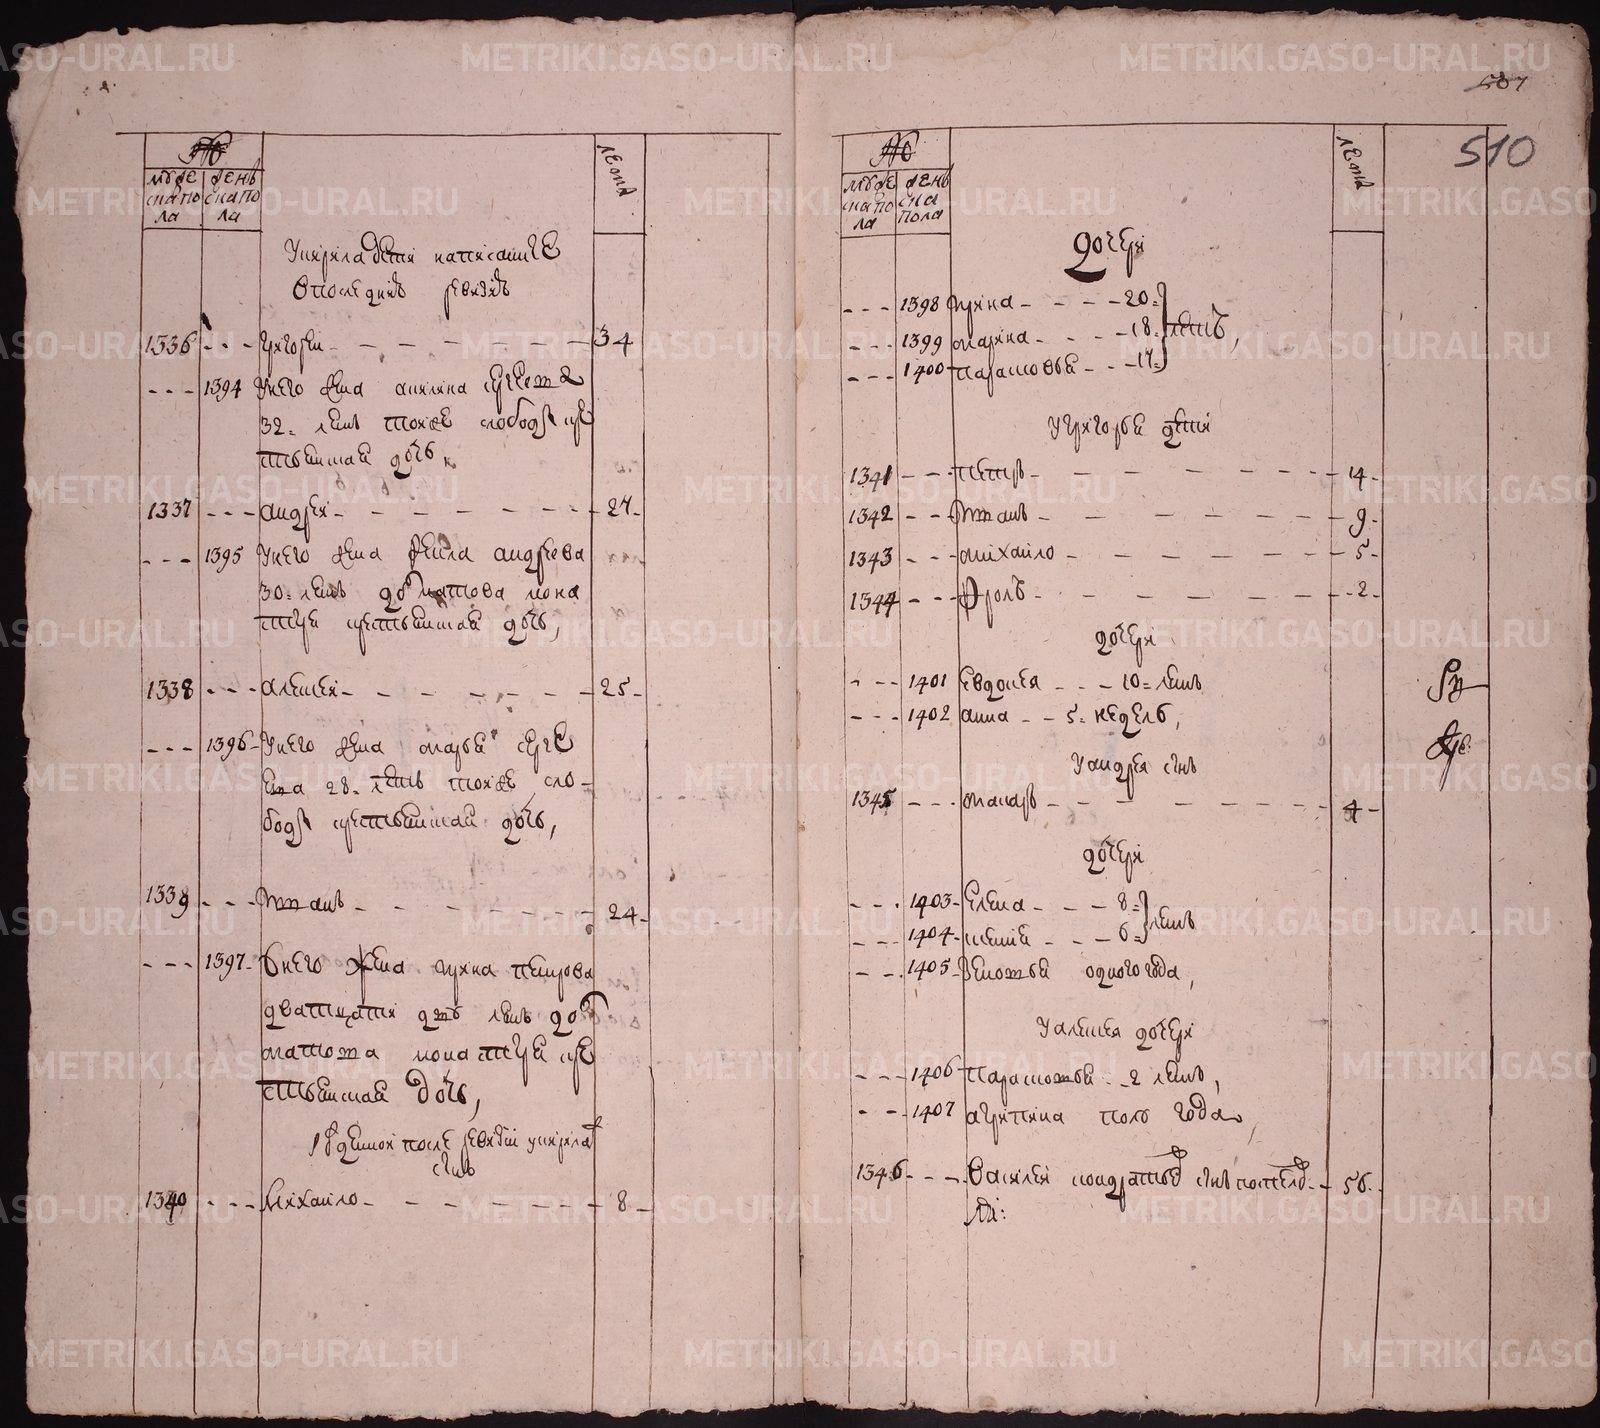 №
мужеска пола
женска пола
лета
У кирила дети написанные
в последней ревизии
1336 - - - григорей - - - 34
- - - 1394 У него жена
32 летъ тоя же слободы кре
стьянская дочь
1337 - - - андрей - - - 27
- - - 1395 У него жена андреева
30 летъ
крестьянская дочь,
1338 - - - алексей - - - 25
- - - 1396 У него жена марья серге
ева 28 летъ тоя же сло
боды крестьянская дочь,
1339 - - - иванъ - - - 24
- - - 1397 У него жена ирина петрова
дватцати летъ до
матова монастыря кре
стьянская дочь,
рожденной после ревизии у кирила
сынъ
1340 - - - михаило - - - 8
507
510
№
мужеска пола
женска пола
лета
дочери
- - - 1398 ирина - - - 20
- - - 1399 марина - - - 18 летъ,
- - - 1400 парасковья - - - 17
У григорья дети
1341 - - - петръ - - - 14
1342 - - - иванъ - - - 9
1343 - - - михаило - - - 5
1344 - - - фролъ - - - 2
дочери
- - - 1401 евдокея - - - 10 летъ
- - - 1402 анна - - 5 недель,
У андрея сынъ
1345 - - - макаръ - - - 4
дочери
- - - 1403 елена - - - 8
- - - 1404 - - - 6 летъ
- - - 1405 одного года,
У алексея дочери
- - - 1406 парасковья - - 2 летъ,
- - 1407 агрипина полъ года,
1346 - - - василей кондратьевъ сынъ - - 56